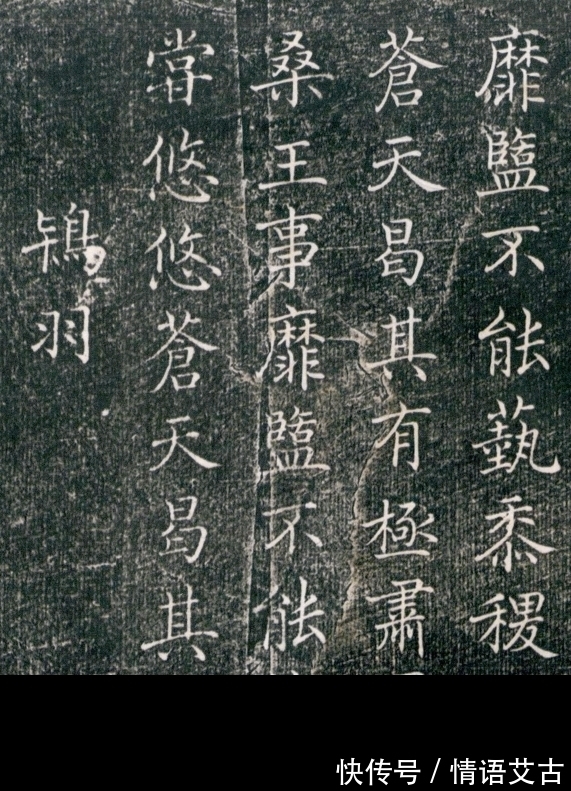 靡盬不能蓺黍稷
蒼天曷其有極肅
桑王事靡盬不能
甞悠悠蒼天曷其
鴇羽
快传号 / 情语艾古